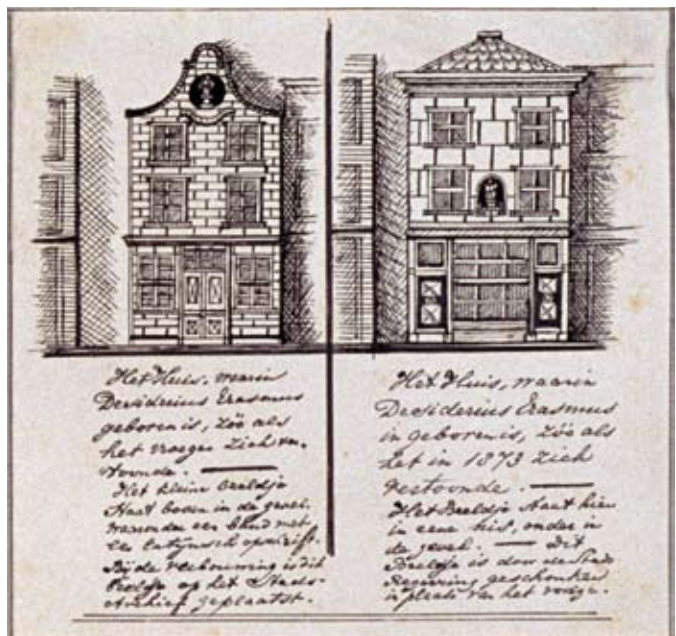 Het Huis, waarin
Desiderius Erasmus
geboren is, zóó als
het vroeger zich ver-
toonde. —
Het kleine beeldje
staat boven in de gevel.
waronder een band met
een latynsch opschrift.
Bij de verbouwing is dit
beeldje op het Stads-
Archief geplaatst.
Het Huis, waarin
Desiderius Erasmus
in geboren is, zóó als
het in 1873 zich
vertoonde. —
Het Beeldje staat hier
in eene nis, onder in
de gevel. — Dit
Beeldje is door de Stads
Regering geschonken
in plaats van het vorige.